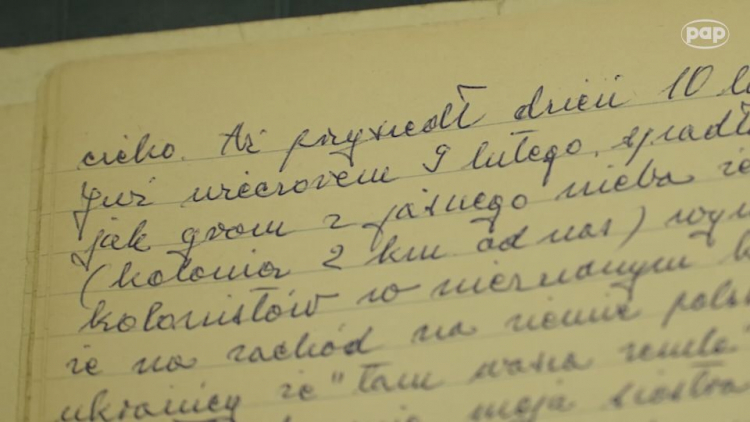 pap
cicho. Aż przyszedł dzień 10 lu
Już wieczorem 9 lutego, spadł
jak grom z jasnego nieba że
(kolonia 2 km od nas) wyw
kolonistów w nieznanym k
że na zachód na ziemie polsk
ukraincy że "tam wasza zemla"
moja siostra